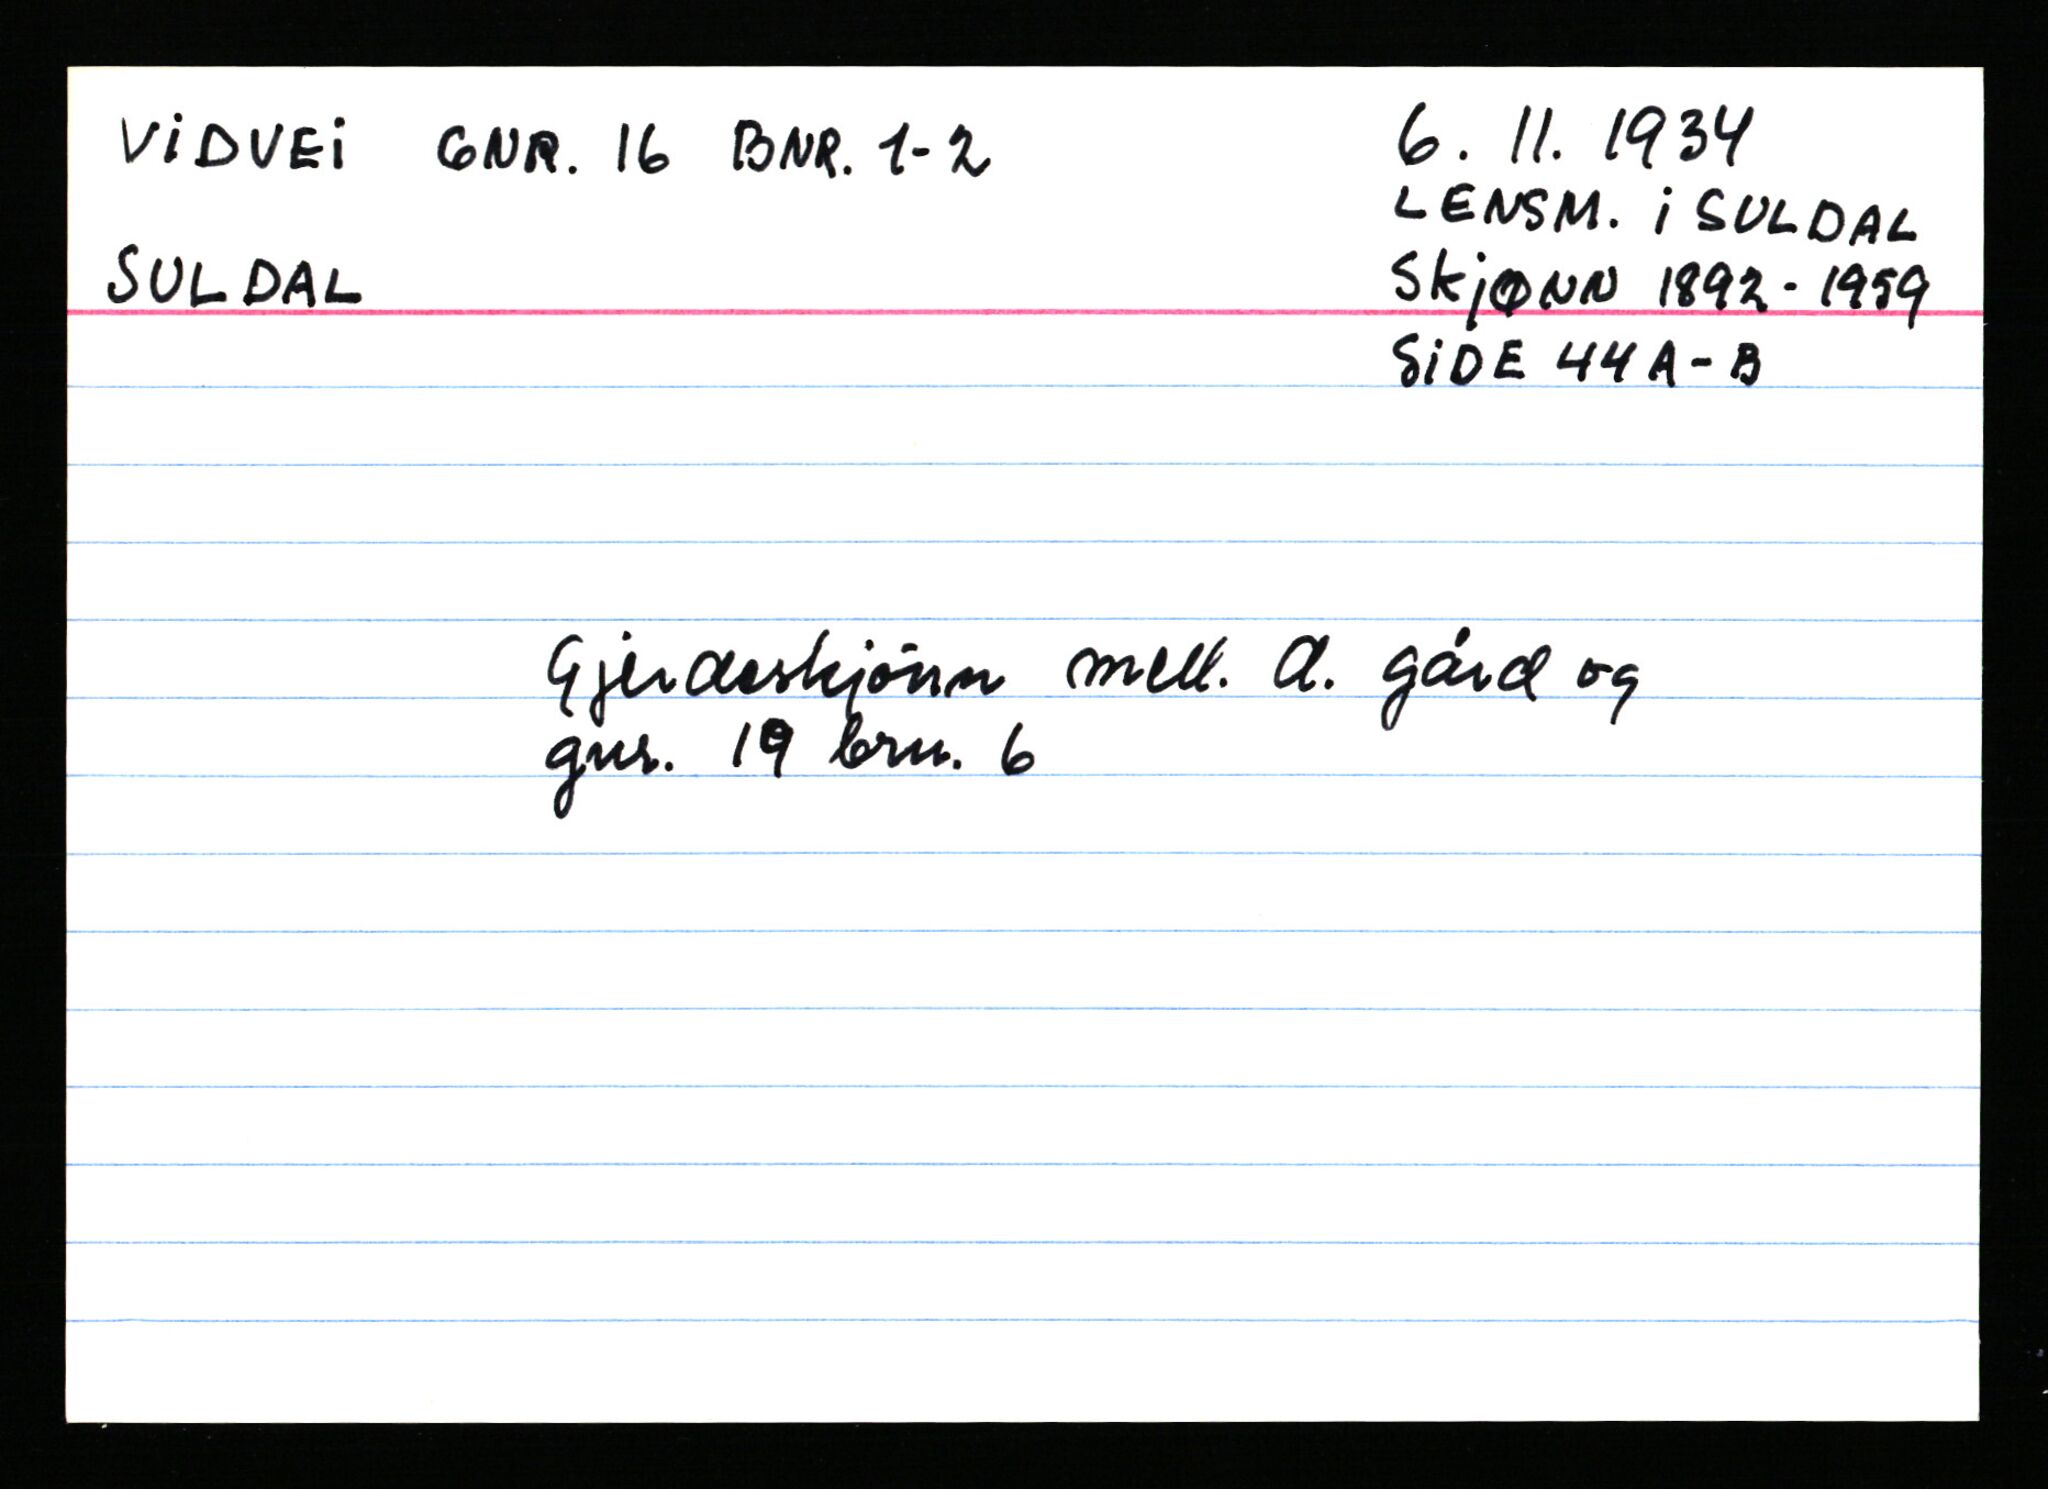 VIDVEI GNR. 16 BNR. 1-2
SULDAL
6. 11. 1934
LENSM. I SULDAL
SKJØNN 1892-1959
SIDE 44A-B
Gjerdeskjønn mell. d. gård og
gnr. 19 brn. 6